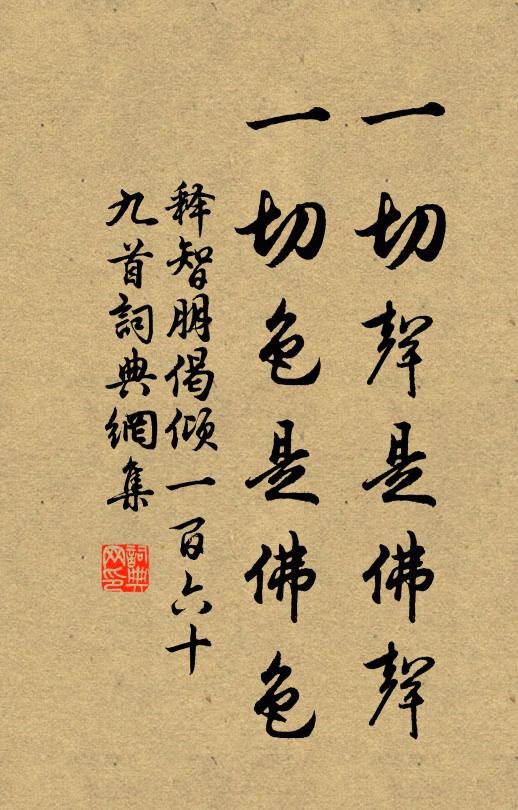 一切聲是佛聲
一切色是佛色
释智朋偈倾一百六十
九首詞典網集
詞典
网印